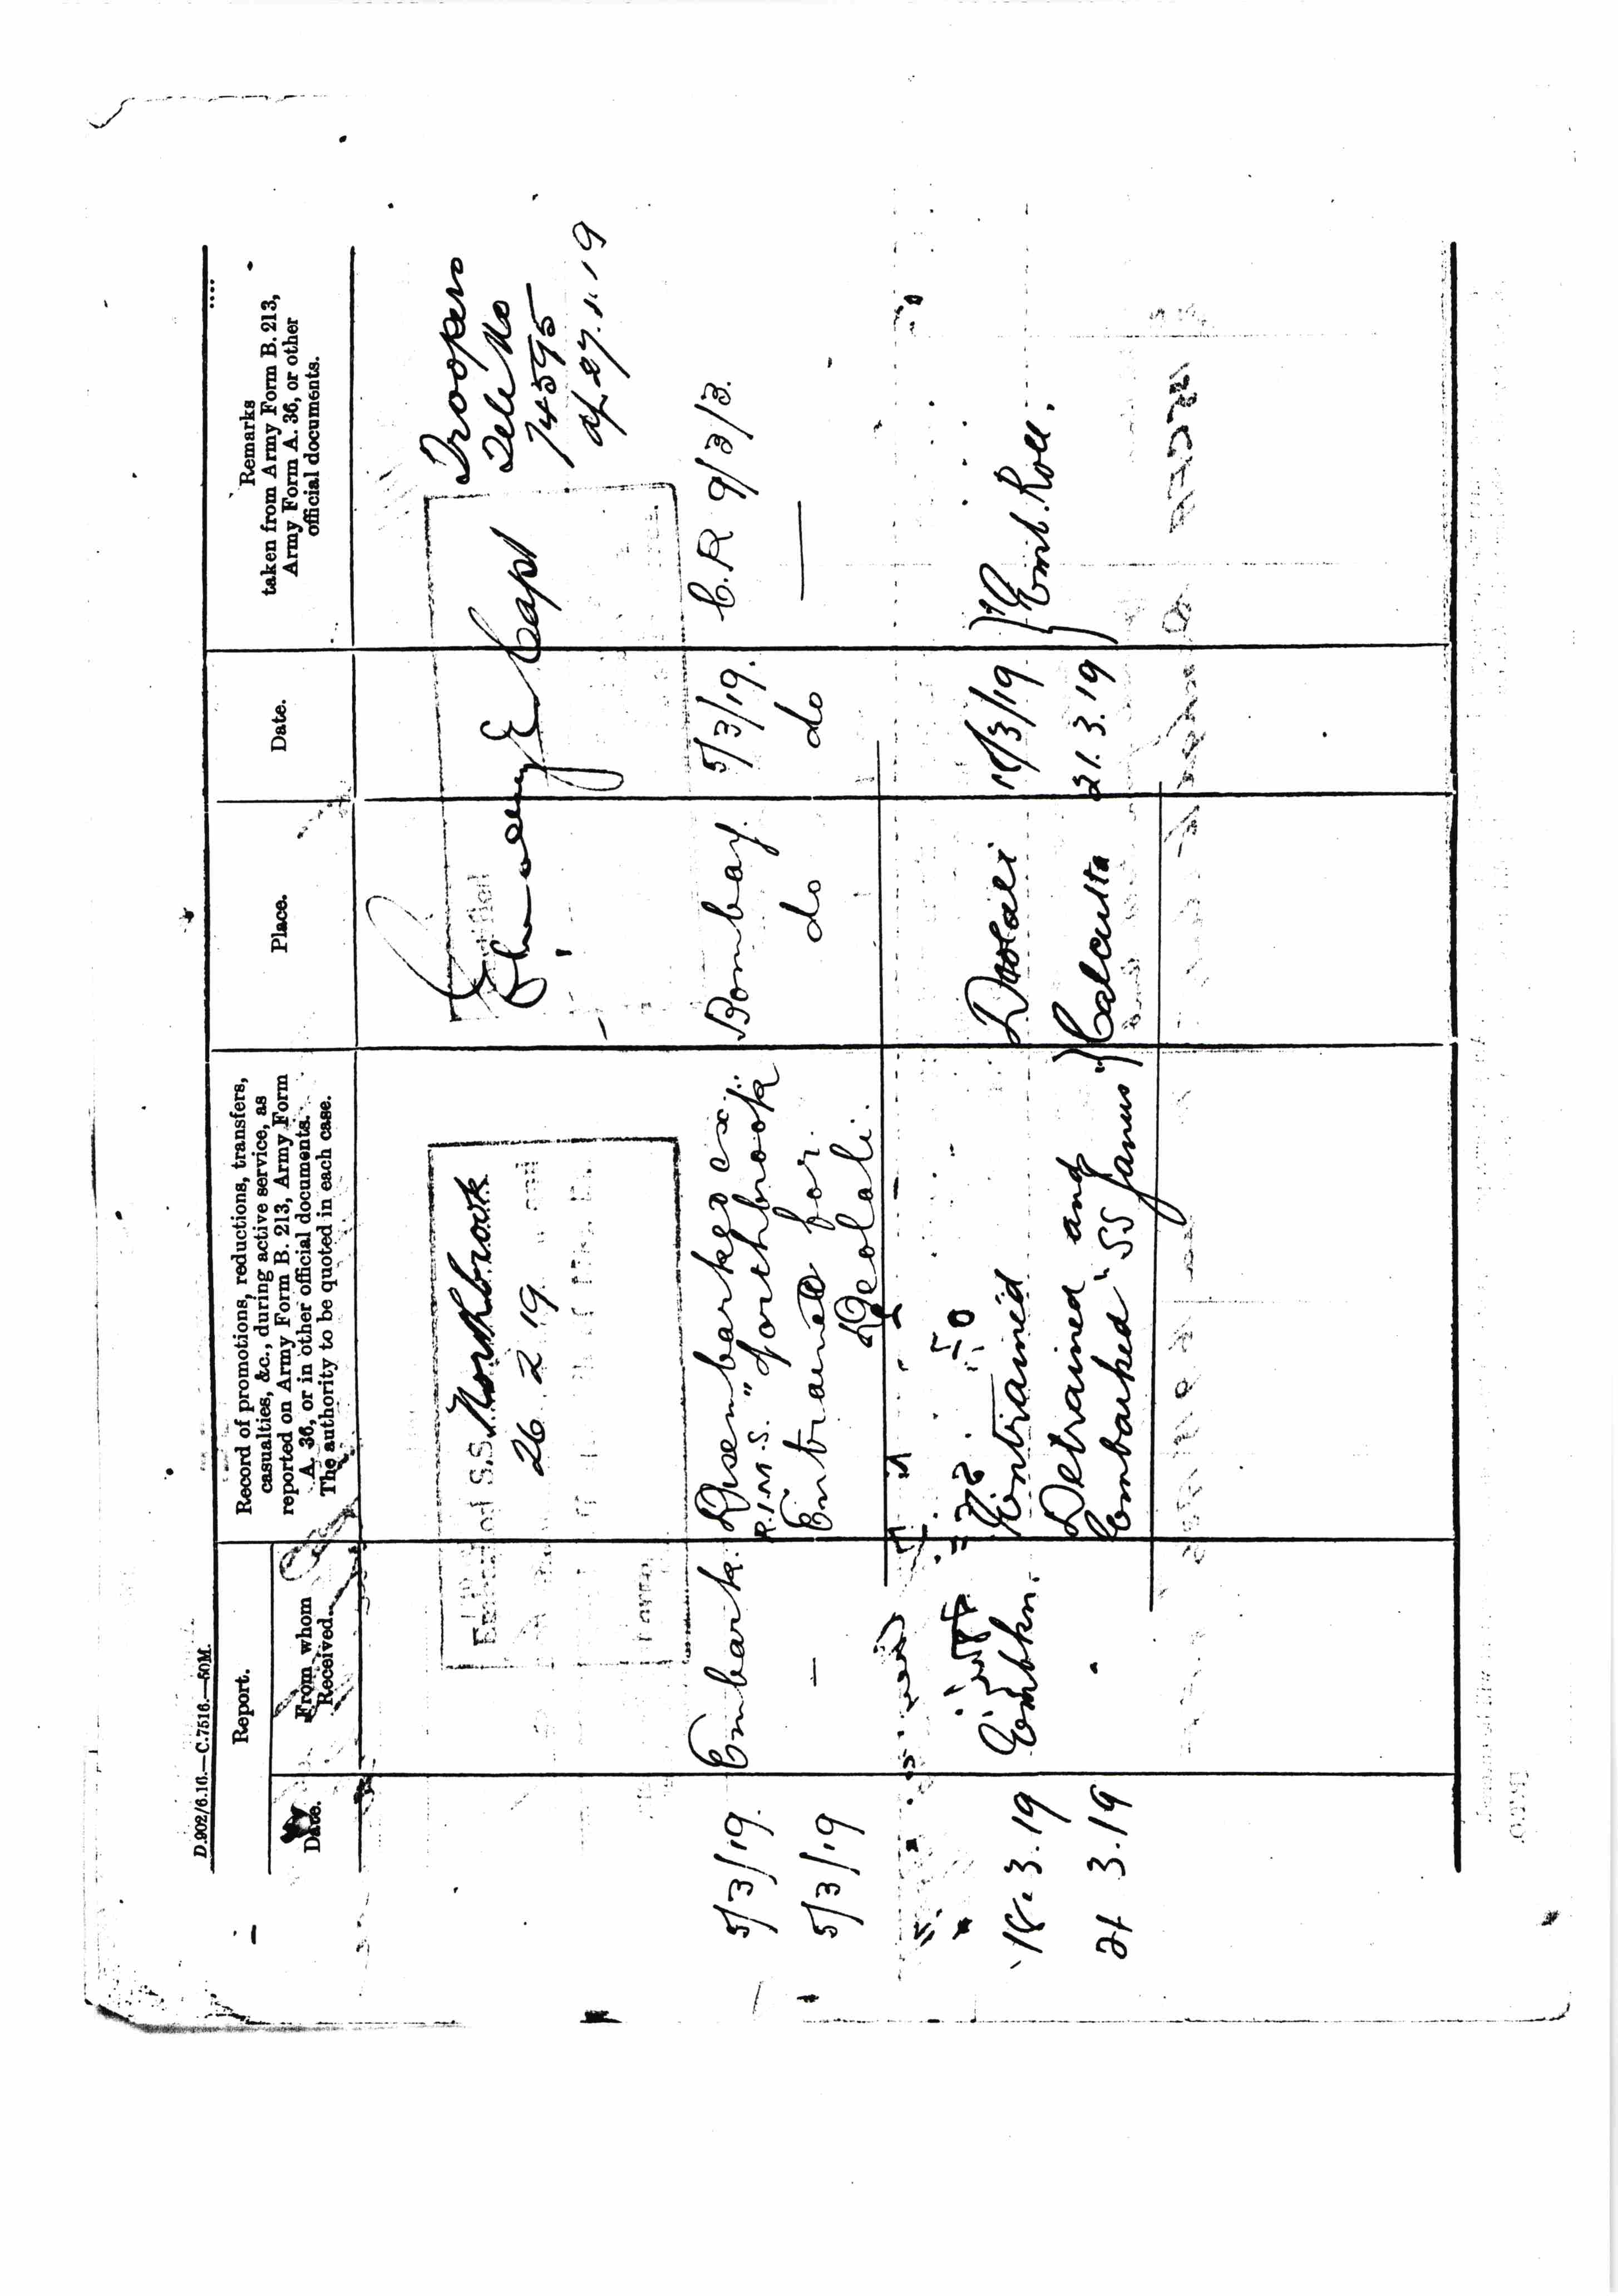 D.902/6.16.—C.7516.—50M.
Report.
Date.
From whom
Received.
Record of promotions, reductions, transfers,
casualties, &c., during active service, as
reported on Army Form B. 213, Army Form
A. 36, or in other official documents.
The authority to be quoted in each case.
Place.
Date.
Remarks
taken from Army Form B. 213,
Army Form A. 36, or other
official documents.
S.S. Northbrook
26 2 19
Capt
Troopers
Tele No
74595
27.1.19
5/3/19. Embark. Disembarked ex. Bombay. 5/3/19. C.R 9/3/3.
R.I.M.S. "Northbrook"
5/3/19 — Entrained for do do —
Deolali.
18.3.19 Embkn. Entrained Deolali 18/3/19 } Emb. Roll.
21 3.19 " Detrained and } Calcutta 21.3.19
Embarked "SS Janus"